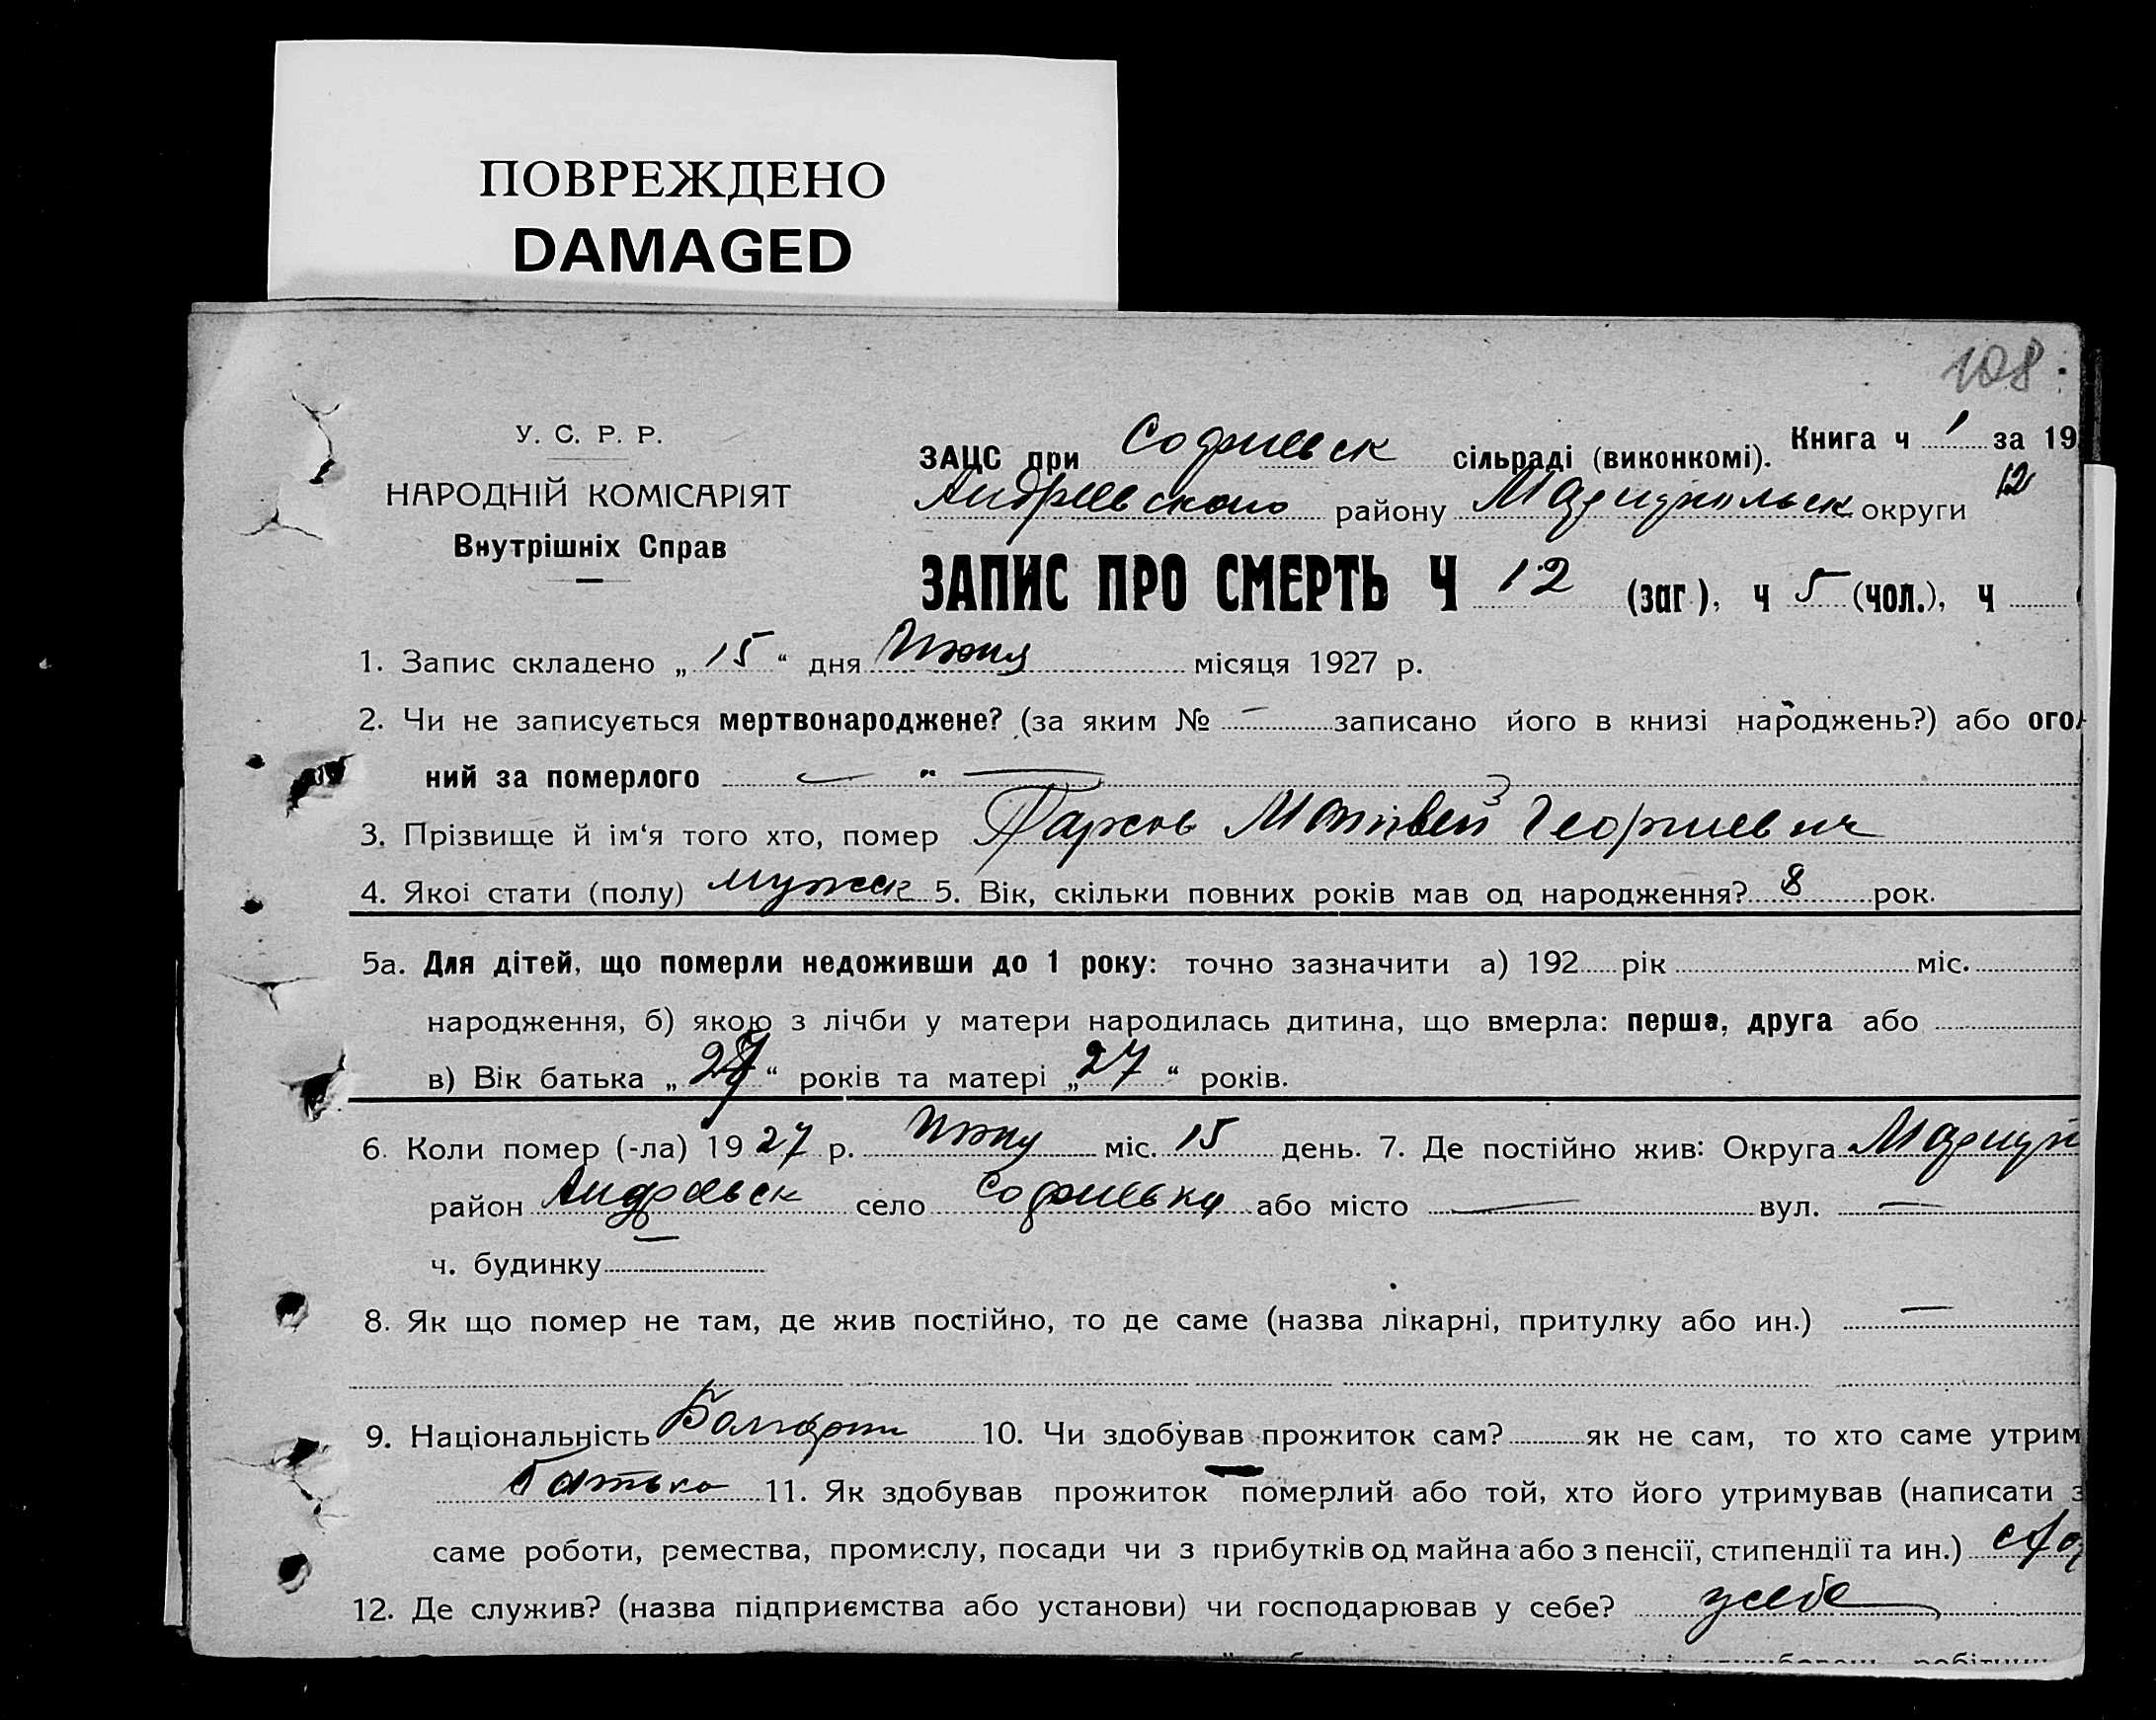 ПОВРЕЖДЕНО
DAMAGED
108
У. С. Р. Р.
НАРОДНІЙ КОМІСАРІЯТ
Внутрішніх Справ
Книга ч 1 за 19
ЗАЦС при Софиевск сільраді (виконкомі).
12
Андреевского району Мариупольск округи
ЗАПИС ПРО СМЕРТЬ Ч 12 (заг.), ч 5 (чол.), ч
1. Запис складено „ 15 “ дня Июня місяця 1927 р.
2. Чи не записується мертвонароджене? (за яким № — записано його в книзі народжень?) або ого
ний за померлого — " —
3. Прізвище й ім‘я того хто, помер Матвей Георгиевич
4. Якої стати (полу) мужск 5. Вік, скільки повних років мав од народження? 8 рок.
5а. Для дітей, що померли недоживши до 1 року: точно зазначити а) 192 рік міс.
народження, б) якою з лічби у матери народилась дитина, що вмерла: перша, друга або
в) Вік батька „ “ років та матері „ 27 “ років.
6. Коли помер (-ла) 19 27 р. Июня міс. 15 день. 7. Де постійно жив: Округа Мариуп
район Андреевск село Софиевка або місто — вул. —
ч. будинку —
8. Як що помер не там, де жив постійно, то де саме (назва лікарні, притулку або ин.) —
9. Національність Болгарин 10. Чи здобував прожиток сам? як не сам, то хто саме утрим
батько 11. Як здобував прожиток померлий або той, хто його утримував (написати з
саме роботи, ремества, промислу, посади чи з прибутків од майна або з пенсії, стипендії та ин.)
12. Де служив? (назва підприємства або установи) чи господарював у себе? у себе